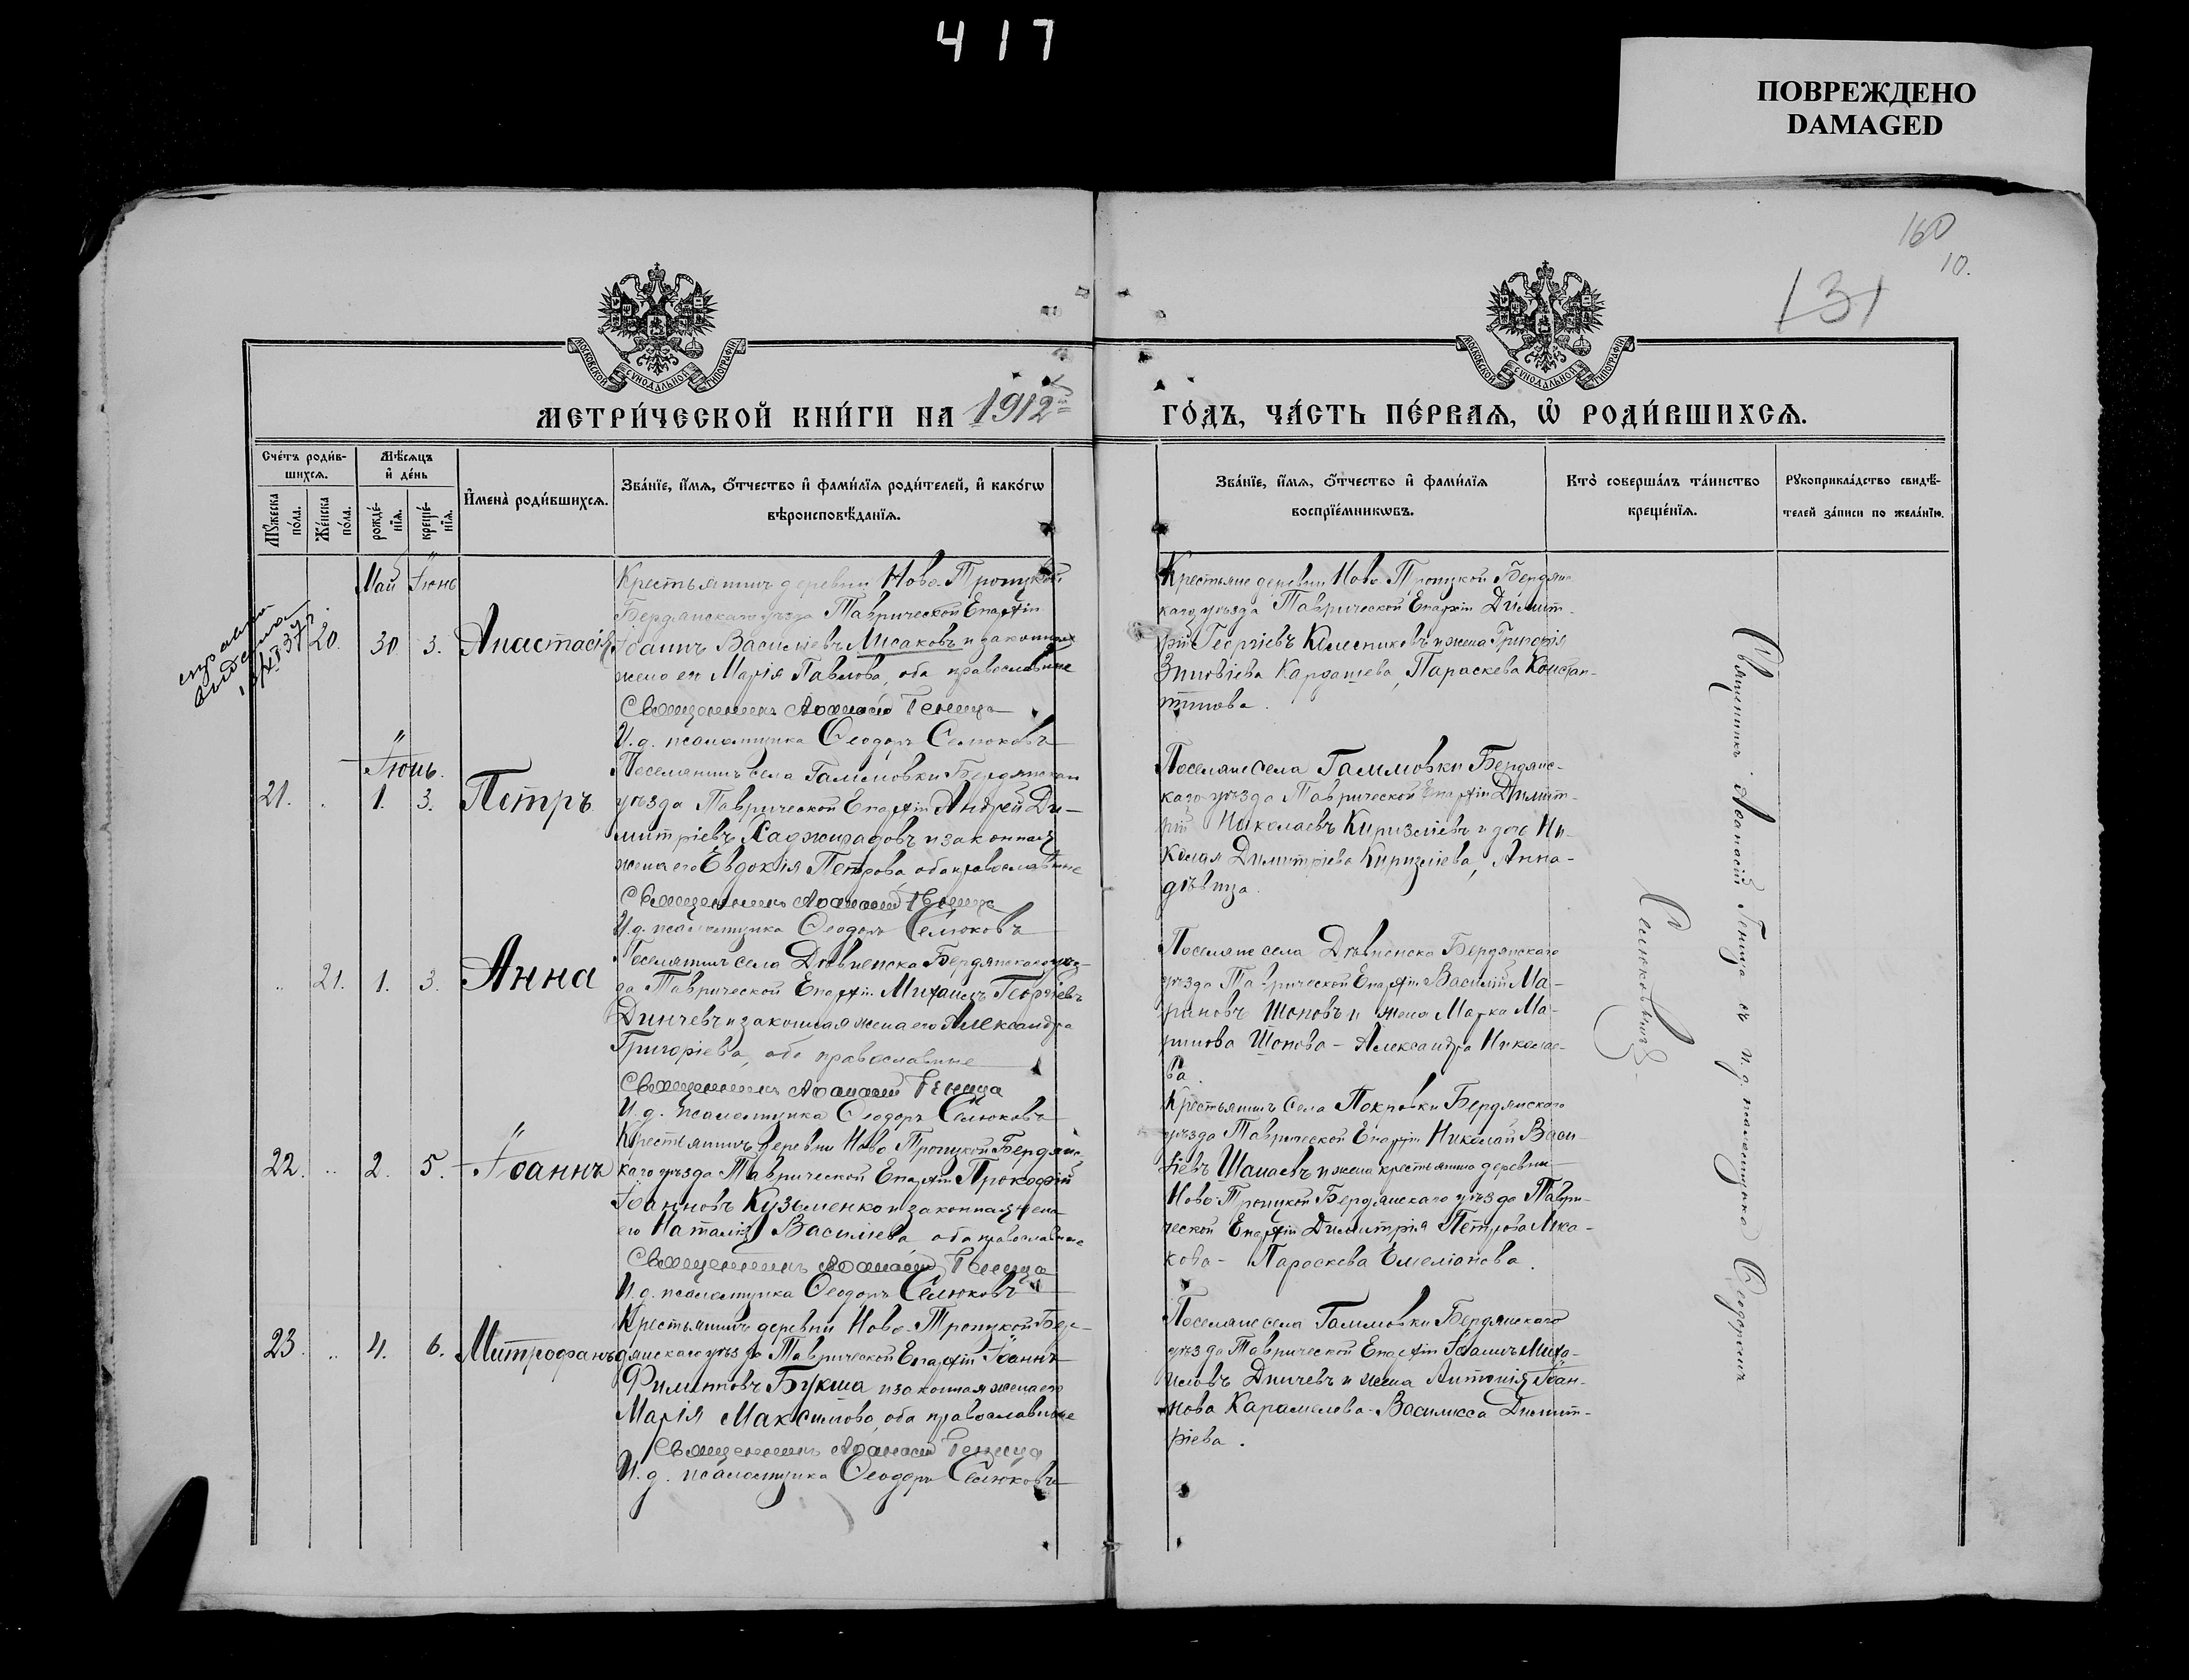 417
ПОВРЕЖДЕНО
DAMAGED
160
10.
131
МОСКОВСКОЙ СУНОДАЛЬНОЙ ТИПОГРАФІИ
МОСКОВСКОЙ СУНОДАЛЬНОЙ ТИПОГРАФІИ
МЕТРИ́ЧЕСКОЙ КНИ́ГИ НА 1912
ГО́ДЪ, ЧА́СТЬ ПЕ́РВАѦ, Ѡ҆ РОДИ́ВШИХСѦ.
Сче́тъ роди́в-
шихсѧ.
Мѣ́сѧцъ
и҆ де́нь
Мꙋ́жеска
по́ла.
Же́нска
по́ла.
рожде́-
нїѧ.
креще́-
нїѧ.
И҆мена̀ роди́вшихсѧ.
Зва́нїе, и҆́мѧ, ѻ҆́тчество и҆ фами́лїѧ роди́телей, и҆ како́гѡ
вѣроисповѣ́данїѧ.
Зва́нїе, и҆́мѧ, ѻ҆́тчество и҆ фами́лїѧ
воспрїе́мникѡвъ.
Кто̀ соверша́лъ та́инство
креще́нїѧ.
Рꙋкоприкла́дство свидѣ́-
телей за́писи по жела́нїю.
Май Іюнь
20. 30 3. Анастасія
Крестьянинъ деревни Ново-Троицкой
Бердянскаго уѣзда Таврической Епархіи
Іоаннъ Васильевъ Мисаковъ и законная
жена его Марія Павлова, оба православные
Священникъ Аѳанасій Геница
И. д. псаломщика Ѳеодоръ Семоковъ
Крестьяне деревни Ново-Троицкой Бердянс-
каго уѣзда Таврической Епархіи Димит-
рій Георгіевъ Колесниковъ и жена Григорія
Зиновіева Кардашева, Параскева Констан-
тинова.
Іюнь.
21. 1. 3. Петръ
Поселянинъ села Гамовки Бердянскаго
уѣзда Таврической Епархіи Андрей Ди-
митріевъ Хаджирадовъ и законная
жена его Евдокія Петрова, оба православные
Священникъ Аѳанасій Геница
И. д. псаломщика Ѳеодоръ Семоковъ
Поселяне села Гамовки Бердянс-
каго уѣзда Таврической Епархіи Димит-
рій Николаевъ Киризліевъ и дочь Ни-
колая Димитріева Киризліева, Анна-
дѣвица.
21. 1. 3. Анна
Поселянинъ села Дѣвненска Бердянскаго уѣз-
да Таврической Епархіи Михаилъ Георгіевъ
Динчевъ и законная жена его Александра
Григоріева, оба православные
Священникъ Аѳанасій Геница
И. д. псаломщика Ѳеодоръ Семоковъ
Поселяне села Дѣвненска Бердянскаго
уѣзда Таврической Епархіи Василій Ма-
риновъ Шоповъ и жена Марка Ма-
ринова Шопова - Александра Николае-
ва.
22. 2. 5. Іоаннъ
Крестьянинъ деревни Ново-Троицкой Бердянс-
каго уѣзда Таврической Епархіи Прокофій
Іоанновъ Кузьменко и законная жена
его Наталія Васильева, оба православные
Священникъ Аѳанасій Геница
И. д. псаломщика Ѳеодоръ Семоковъ
Крестьянинъ села Покровки Бердянскаго
уѣзда Таврической Епархіи Николай Васи-
ліевъ Шамаевъ и жена крестьянина деревни
Ново-Троицкой Бердянскаго уѣзда Таври-
ческой Епархіи Димитрія Петрова Миса-
кова - Параскева Емеліанова.
23. 4. 6. Митрофанъ
Крестьянинъ деревни Ново-Троицкой Бер-
дянскаго уѣзда Таврической Епархіи Іоаннъ
Филипповъ Букша и законная жена его
Марія Максимова, оба православные
Священникъ Аѳанасій Геница
И. д. псаломщика Ѳеодоръ Семоковъ
Поселяне села Гамовки Бердянскаго
уѣзда Таврической Епархіи Іоаннъ Миха-
иловъ Динчевъ и жена Антонія Іоан-
нова Карамелева - Василисса Димит-
ріева.
Священникъ Аѳанасій Геница съ и. д. псаломщика Ѳеодоромъ
Семоковымъ.